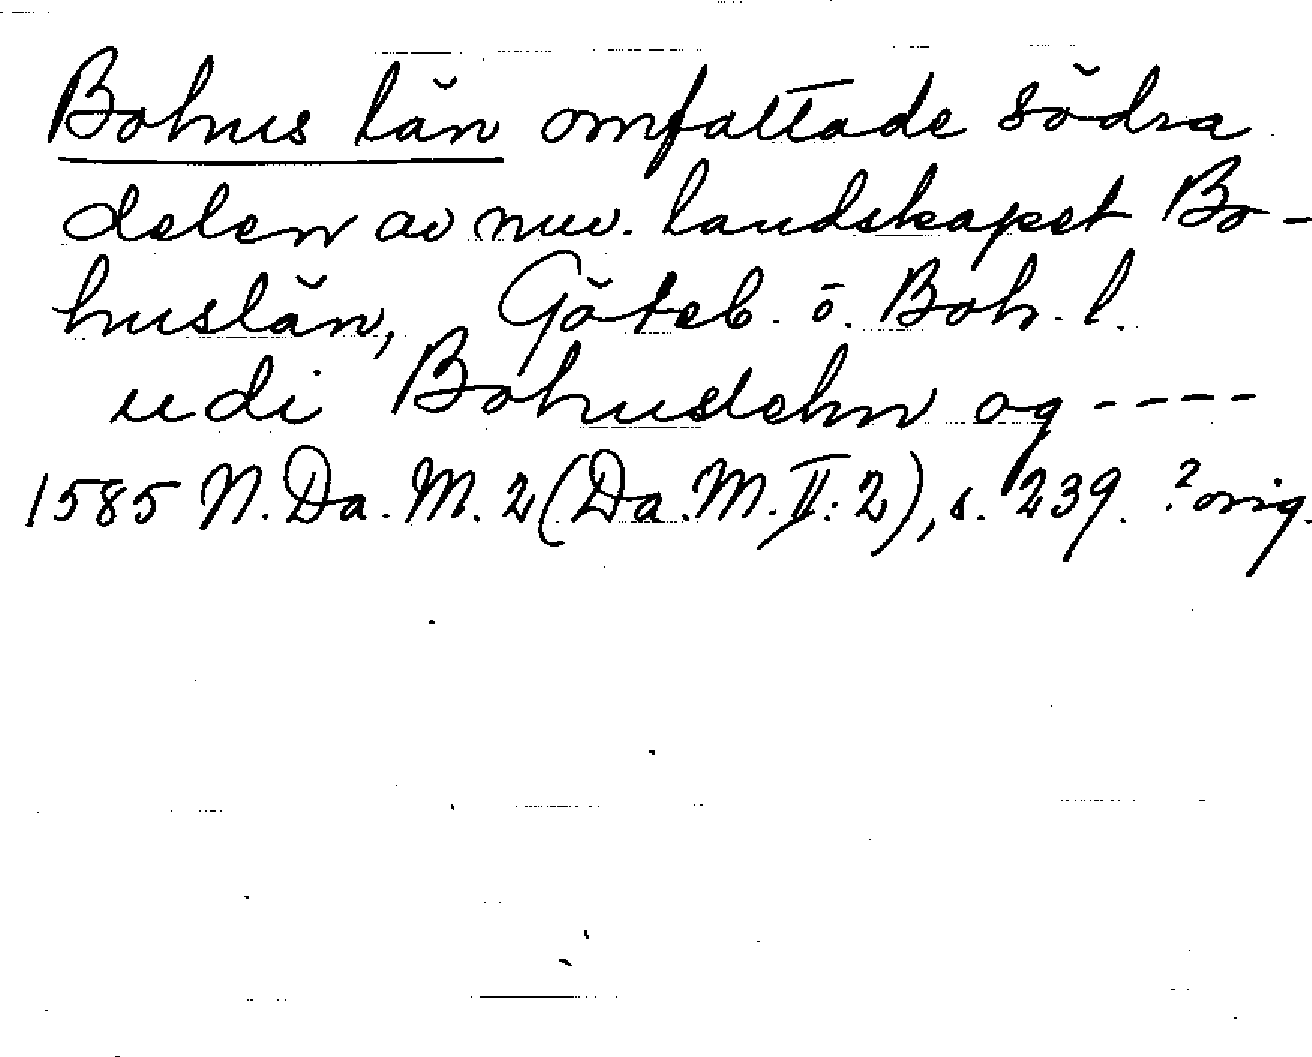 Bohus län omfattade södra
delen av nuv. landskapet Bo-
huslän, Göteb. o. Boh. l.
udi Bohuslehn og ----
1585 N. Da. M. 2 (Da. M. II: 2), s. 239. ? orig.